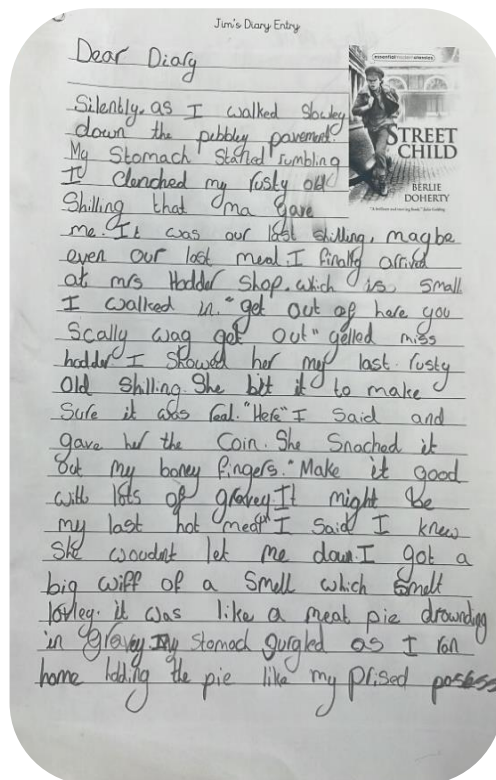 Jim's Diary Entry
Dear Diary
essential modern classics
STREET
CHILD
BERLIE
DOHERTY
Silently, as I walked slowley
down the pebbley pavement.
My Stomach started rumbling
I clenched my rusty old
Shilling that ma gave
me. It was our last shilling, maybe
even our last meal. I finally arrived
at mrs Hodder shop. which is small
I walked in. "get out of here you
Scally wag get out" yelled miss
hodder. I showed her my last rusty
old Shilling. She bit it to make
Sure it was real. "Here" I Said and
gave her the Coin. She Snached it
out my boney fingers. "Make it good
with lots of gravey. It might be
my last hot meal" I Said I knew
She woudnt let me down. I got a
big wiff of a Smell which smelt
lovley. it was like a meat pie drownding
in gravey. My Stomach gurgled as I ran
home holding the pie like my prised posess